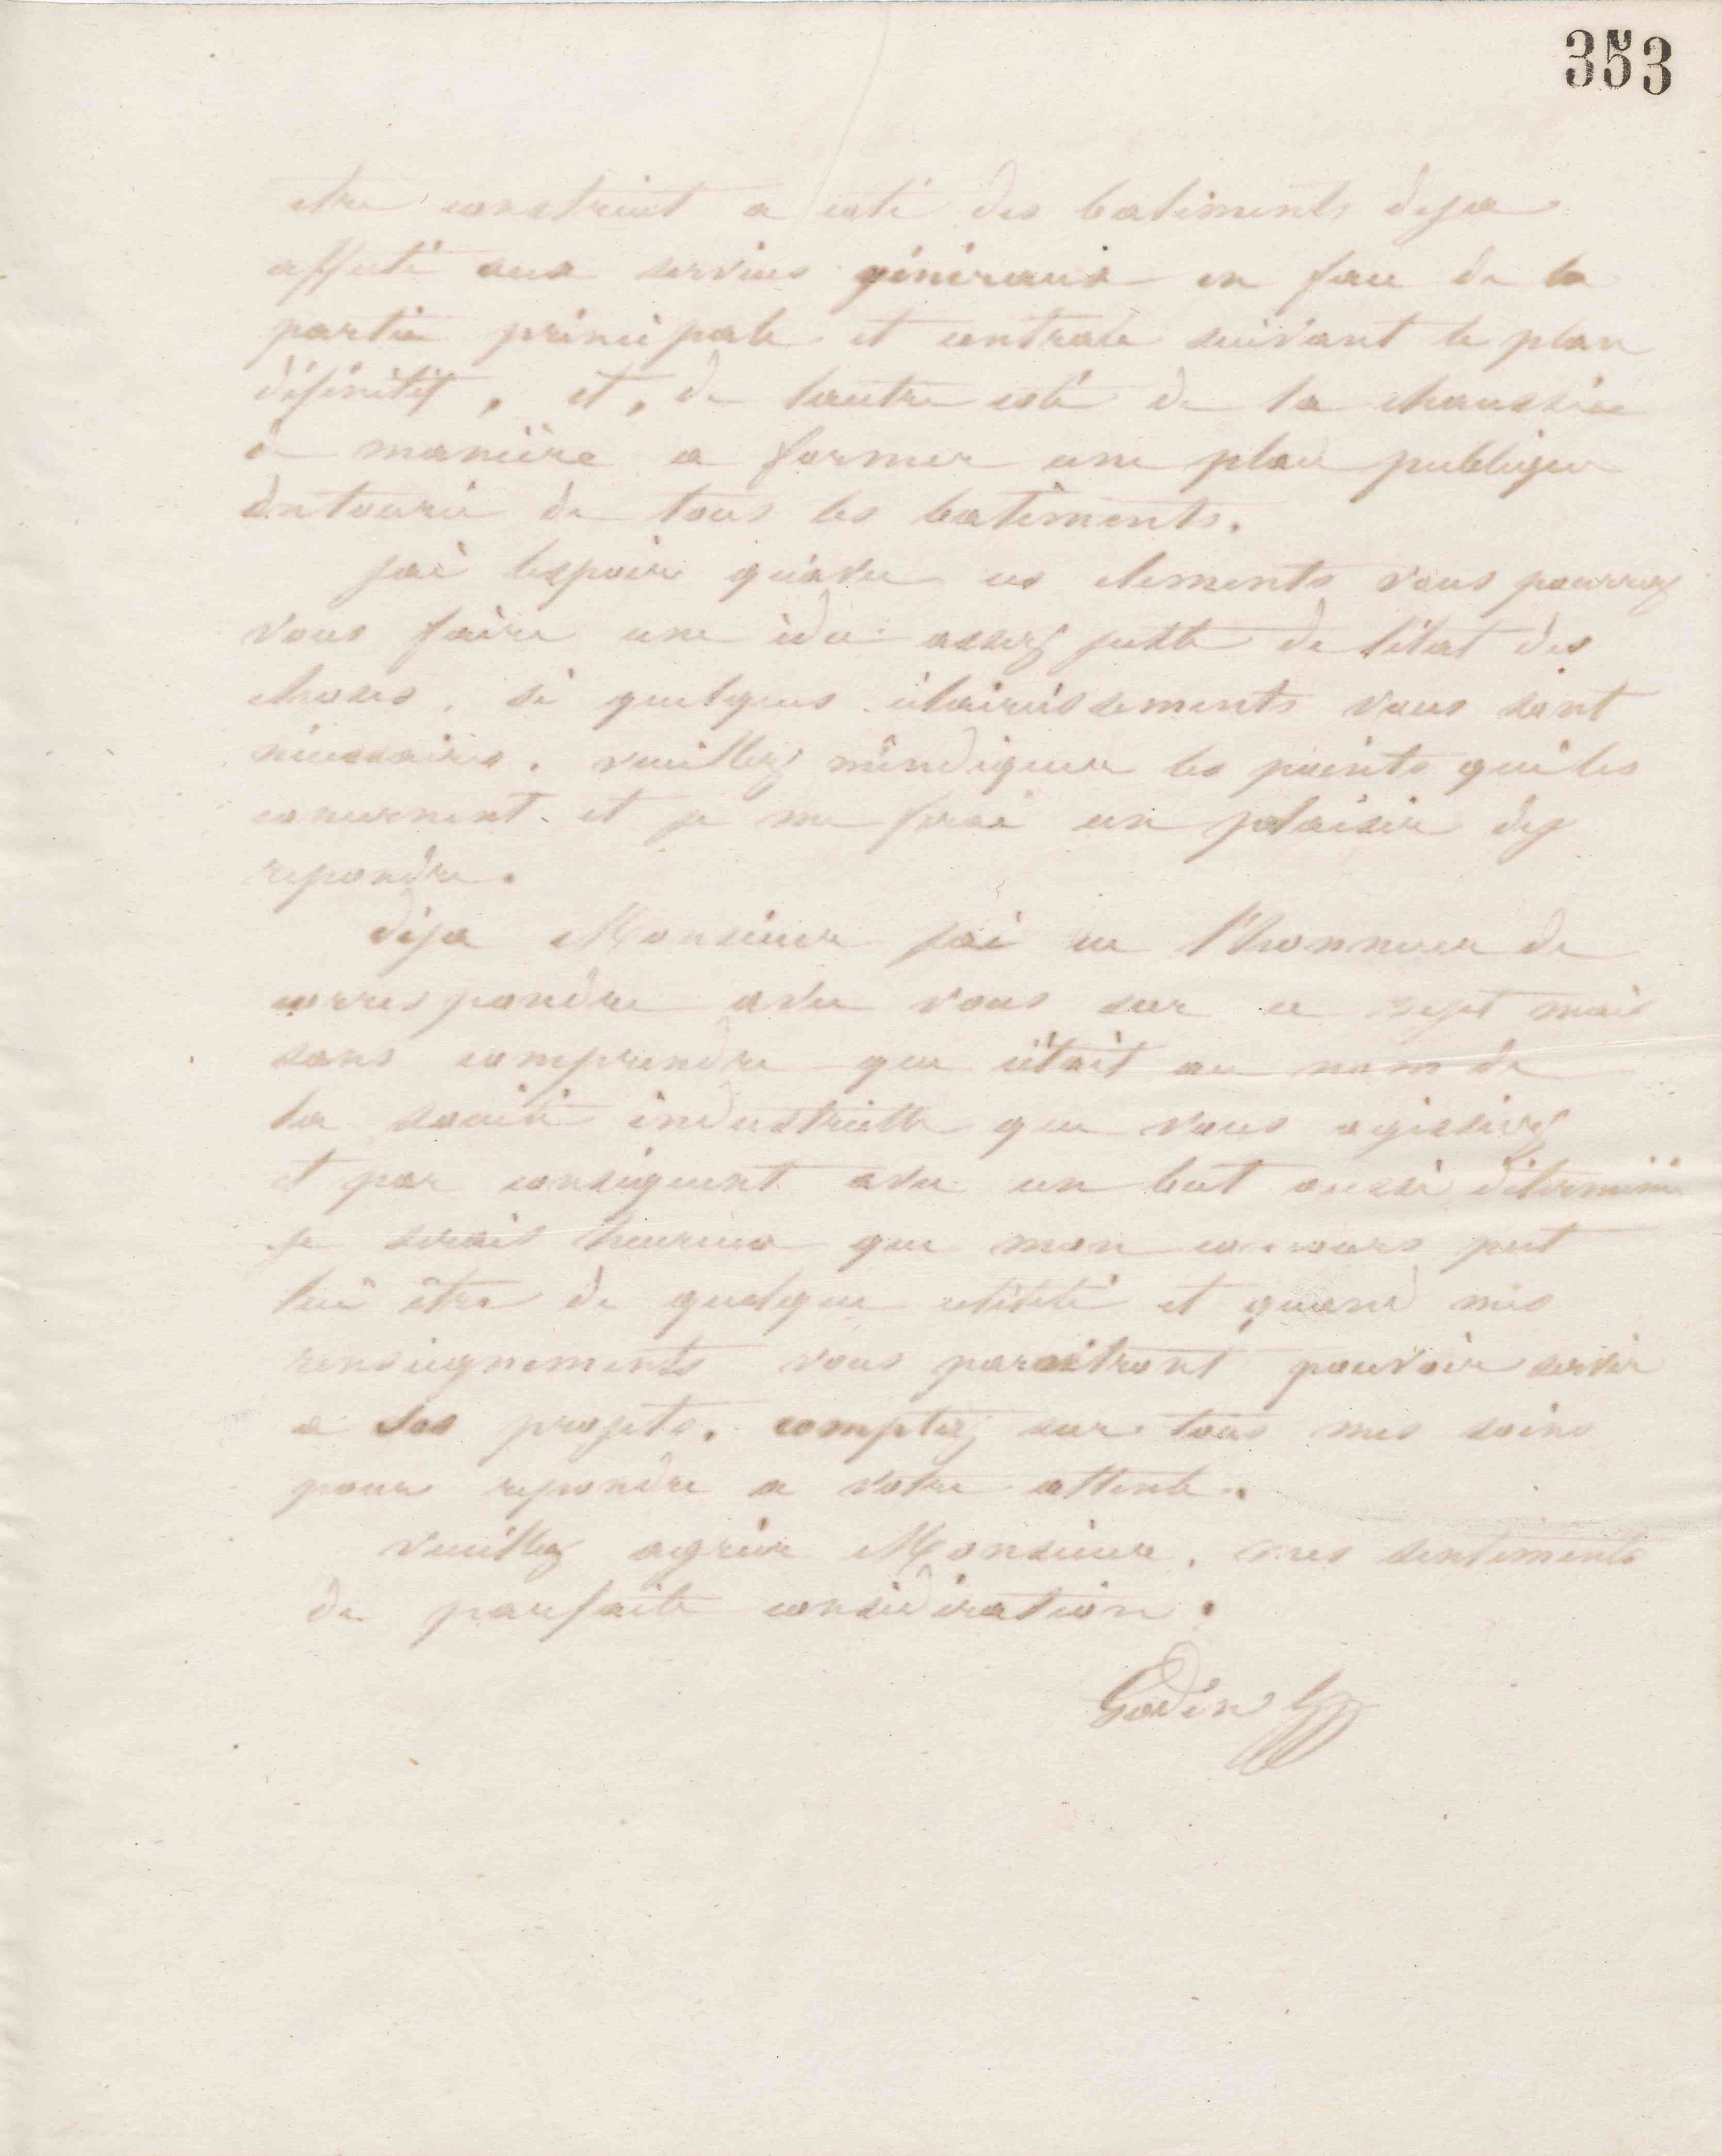 353
etre construit a coté des batiments deja
affecté aux services généraux en face de la
partie principale et centrale suivant le plan
définitif, et, de lautre coté de la chaussée
de manière a former une place publique
entourée de tous les batiments.
jai lespoir quavec ces elements vous pourrez
vous faire une idée assez juste de létat des
choses. si quelques éclaircissements vous sont
nécessaires. veuillez mindiquer les points qui les
concernent et je me ferai un plaisir dy
repondre.
déja Monsieur jai eu l'honneur de
correspondre avec vous sur ce sujet mais
sans comprendre que cétait au nom de
la société industrielle que vous agissiez
et par conséquent avec un but aussi déterminé
je serais heureux que mon concours put
lui être de quelque utilité et quand mes
renseignements vous paraitront pouvoir servir
a ses projets. comptez sur tous mes soins
pour repondre a votre attente.
veuillez agréer Monsieur. mes sentiments
de parfaite considération.
Godin